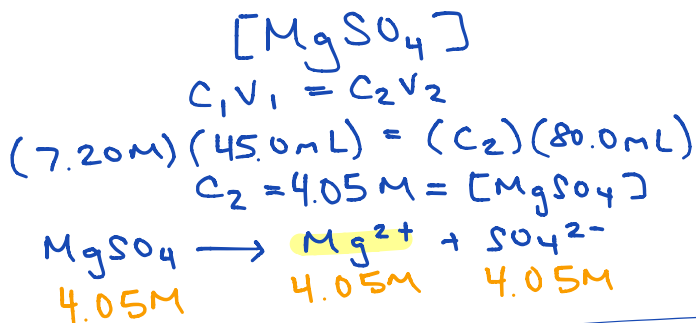 [MgSO₄]
C₁V₁ = C₂V₂
(7.20M)(45.0mL) = (C₂)(80.0mL)
C₂ = 4.05M = [MgSO₄]
MgSO₄ ⟶ Mg²⁺ + SO₄²⁻
4.05M 4.05M 4.05M